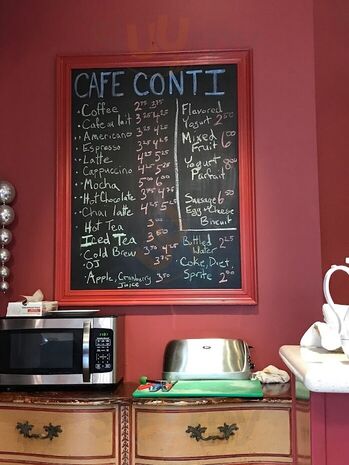 CAFE CONTI
Coffee 2.75 3.75
Cafe au lait 3.25 4.25
Americano 3.25 4.25
Espresso 3.25 4.25
Latte 4.25 5.25
Cappuccino 4.25 5.25
Mocha 5.00 6.00
Hot Chocolate 3.75 4.75
Chai latte 4.25 5.25
Hot Tea 3.00
Iced Tea 3.50
Cold Brew 3.50 4.25
OJ 3.75
Apple, Cranberry 3.50
Juice
Flavored
Yogurt 2.50
Mixed 6.00
Fruit
Yogurt 8.00
Parfait
Sausage 6.50
Egg + Cheese
Biscuit
Bottled 2.25
Water
Coke, Diet,
Sprite 2.00